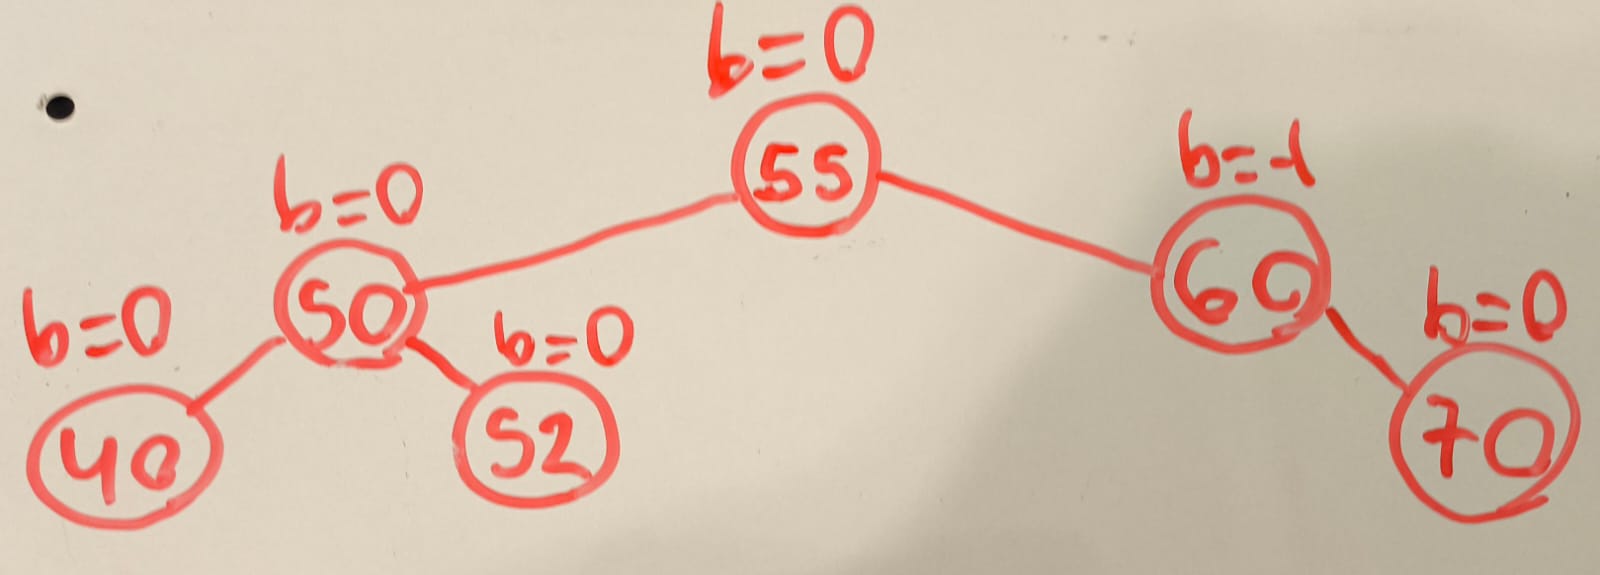 b=0
55
b=0
50
b=-1
60
b=0
40
b=0
52
b=0
70